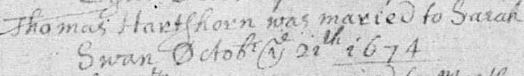 Thomas Hartshorn was maried to Sarah
Swan Octobr ye 21th 1674